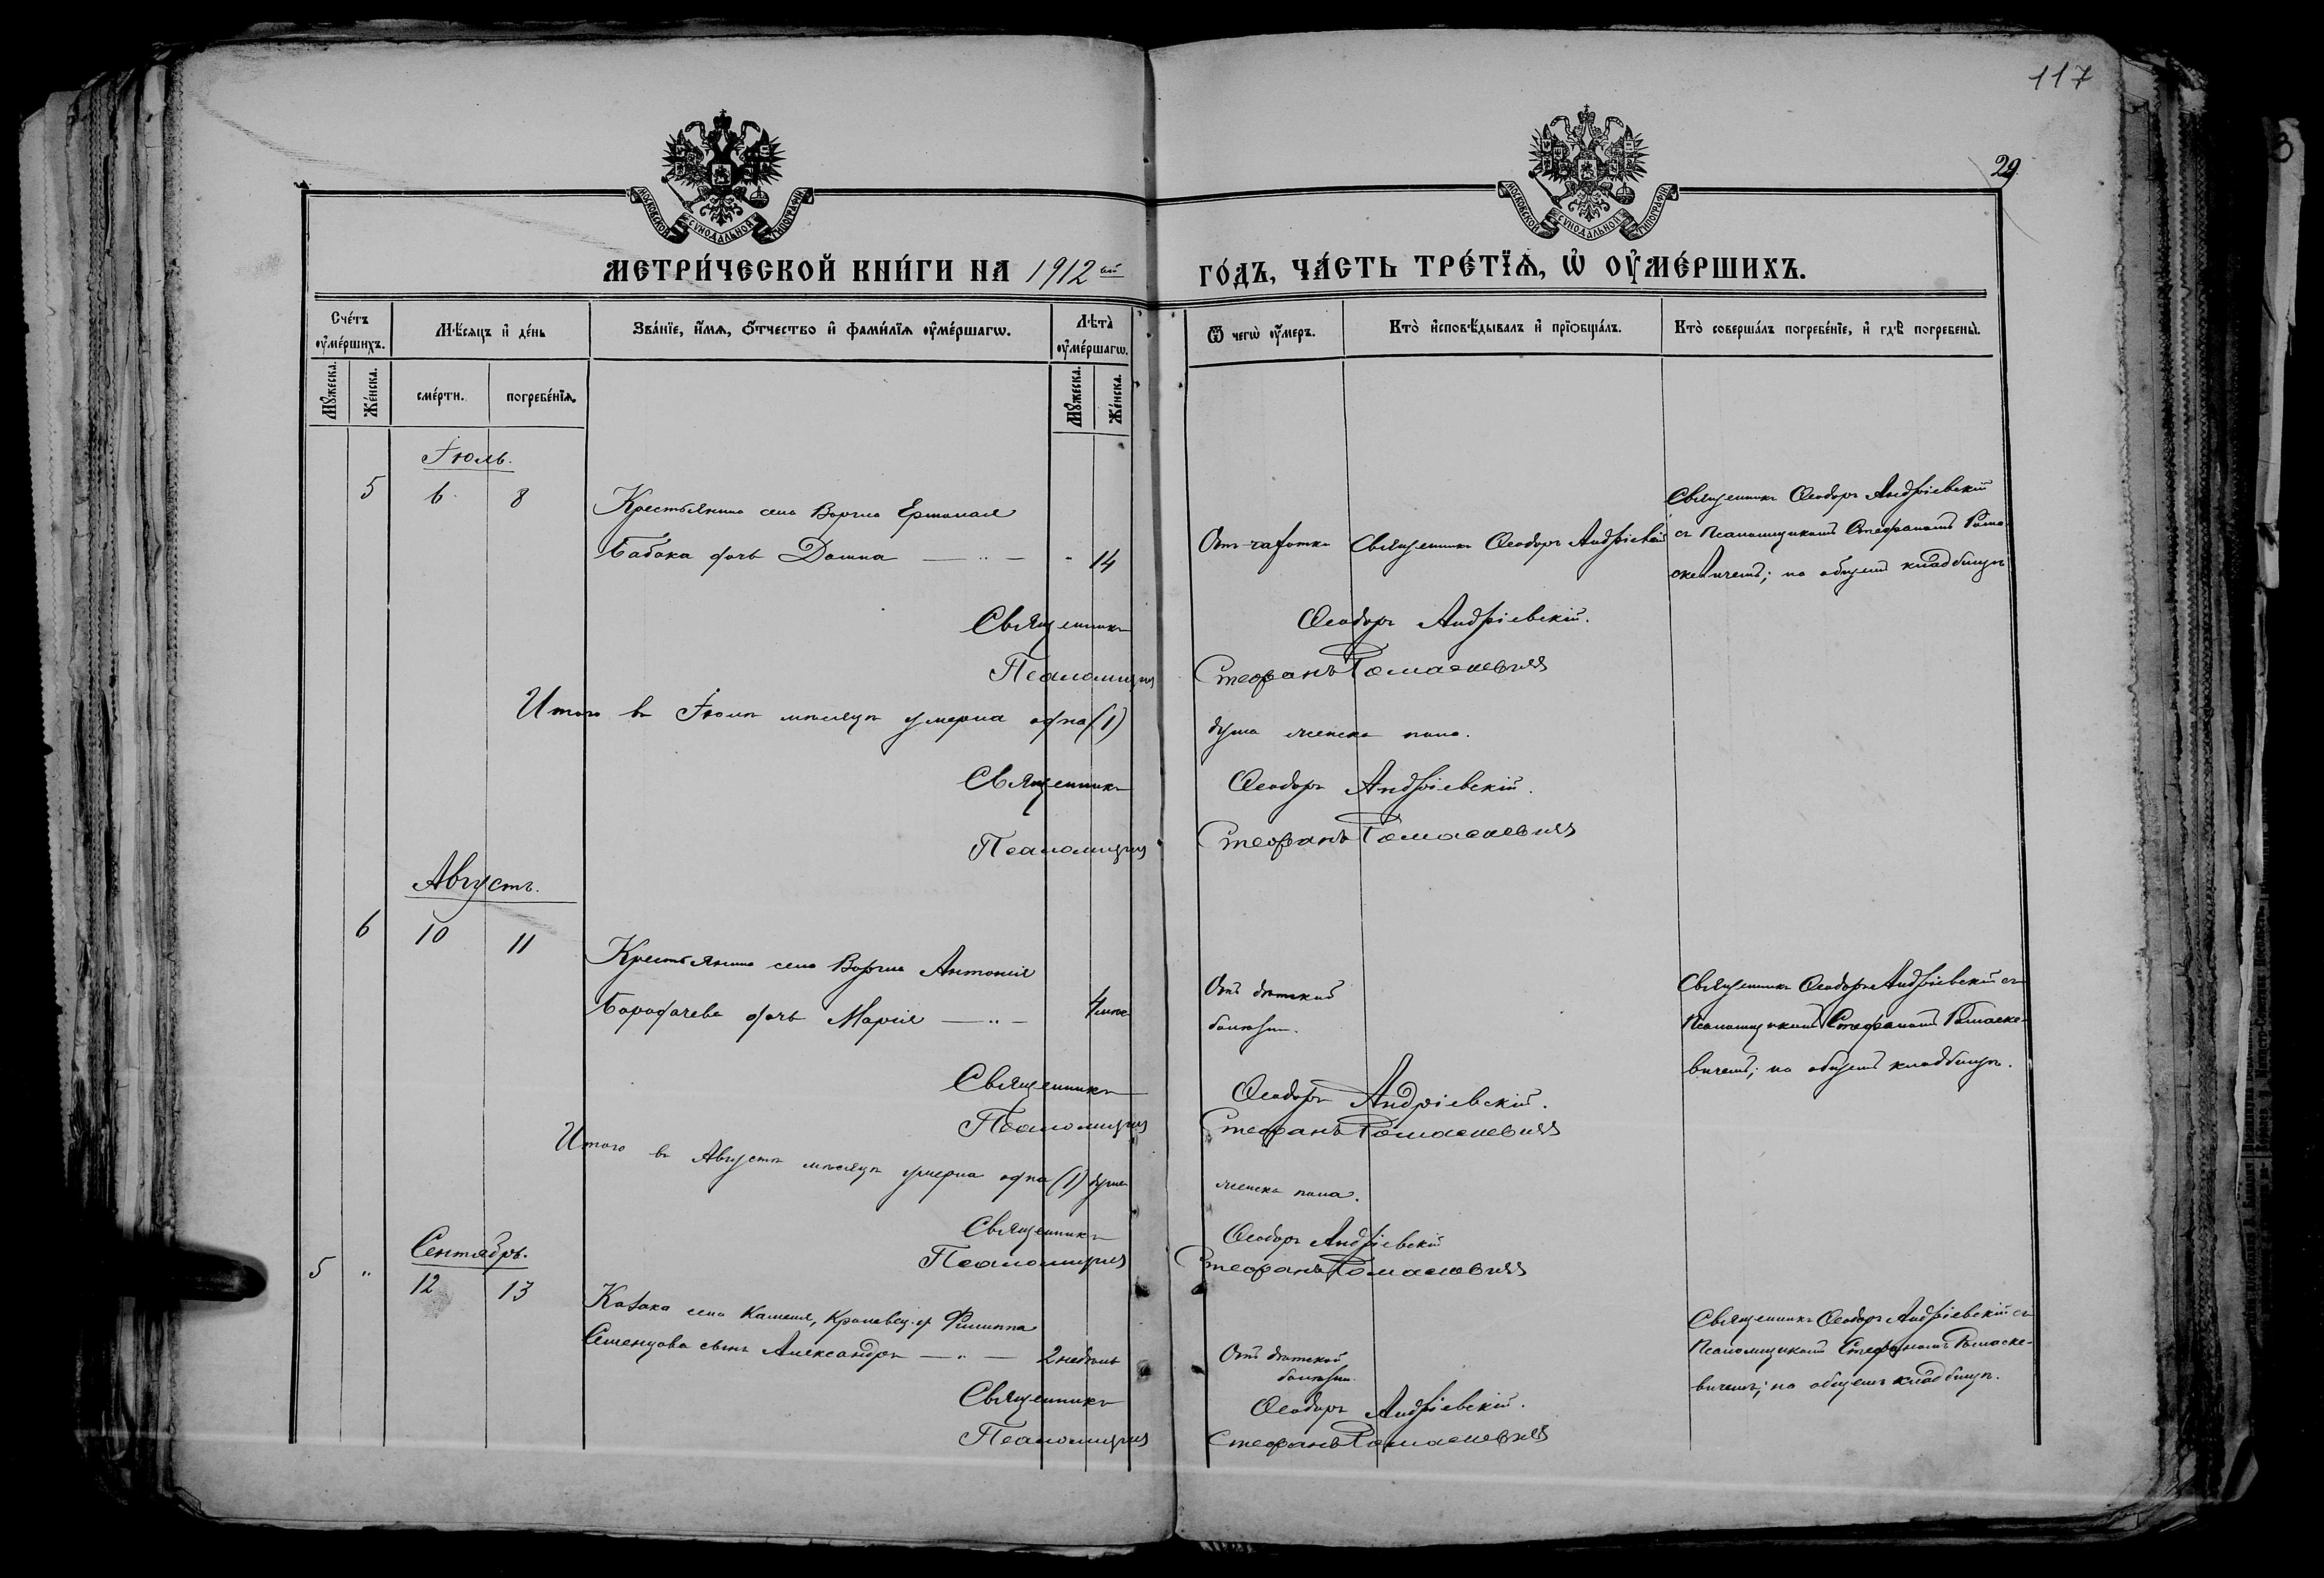 117
29
МОСКОВСКОЙ СѴНОДАЛЬНОЙ ТИПОГРАФІИ
МОСКОВСКОЙ СѴНОДАЛЬНОЙ ТИПОГРАФІИ
МЕТРИ́ЧЕСКОЙ КНИ́ГИ НА 1912 ый
ГО́ДЪ, ЧА́СТЬ ТРЕ́ТЇѦ, Ѡ҆ ОУ҆МЕ́РШИХЪ.
Сче́тъ оу҆ме́ршихъ.
Мѣ́сяцъ и҆ де́нь
Зва́нїе, и҆́мѧ, ѻ҆́тчество и҆ фами́лїѧ оу҆ме́ршагѡ.
Лѣ́та̀ оу҆ме́ршагѡ.
Ѿ чегѡ̀ оу҆́меръ.
Кто̀ и҆сповѣ́дывалъ и҆ прїѡбща́лъ.
Кто̀ соверша́лъ погребе́нїе, и҆ гдѣ̀ погребены̀.
Мꙋ́жеска.
Же́нска.
сме́рти.
погребе́нїѧ.
Мꙋ́жеска.
Же́нска.
Іюль.
5 6 8
Крестьянина села Воргла Ермолая
Бабака дочь Домна — „ — - 14
Отъ чахотки
Священникъ Ѳеодоръ Андріевскій
Священникъ Ѳеодоръ Андріевскій
съ Псаломщикомъ Стефаномъ Рома-
скевичемъ; на общемъ кладбищѣ
Священникъ Ѳеодоръ Андріевскій.
Псаломщикъ Стефанъ Ромаскевичъ
Итого въ Іюлѣ мѣсяцѣ умерла одна (1) душа женска пола.
Священникъ Ѳеодоръ Андріевскій.
Псаломщикъ Стефанъ Ромаскевичъ
Августъ.
6 10 11
Крестьянина села Воргла Антонія
Бородачева дочь Марія — „ —
Отъ дѣтской
болѣзни.
Священникъ Ѳеодоръ Андріевскій съ
Псаломщикомъ Стефаномъ Ромаске-
вичемъ; на общемъ кладбищѣ.
Священникъ Ѳеодоръ Андріевскій.
Псаломщикъ Стефанъ Ромаскевичъ
Итого въ Августѣ мѣсяцѣ умерла одна (1) душа женска пола.
Священникъ Ѳеодоръ Андріевскій
Псаломщикъ Стефанъ Ромаскевичъ
Сентябрь.
5 „ 12 13
Козака села Каменя, Кролевец. у. Филиппа
Семенцова сынъ Александръ — „ — 2 недѣль
Отъ дѣтской
болѣзни.
Священникъ Ѳеодоръ Андріевскій съ
Псаломщикомъ Стефаномъ Ромаске-
вичемъ; на общемъ кладбищѣ.
Священникъ Ѳеодоръ Андріевскій.
Псаломщикъ Стефанъ Ромаскевичъ